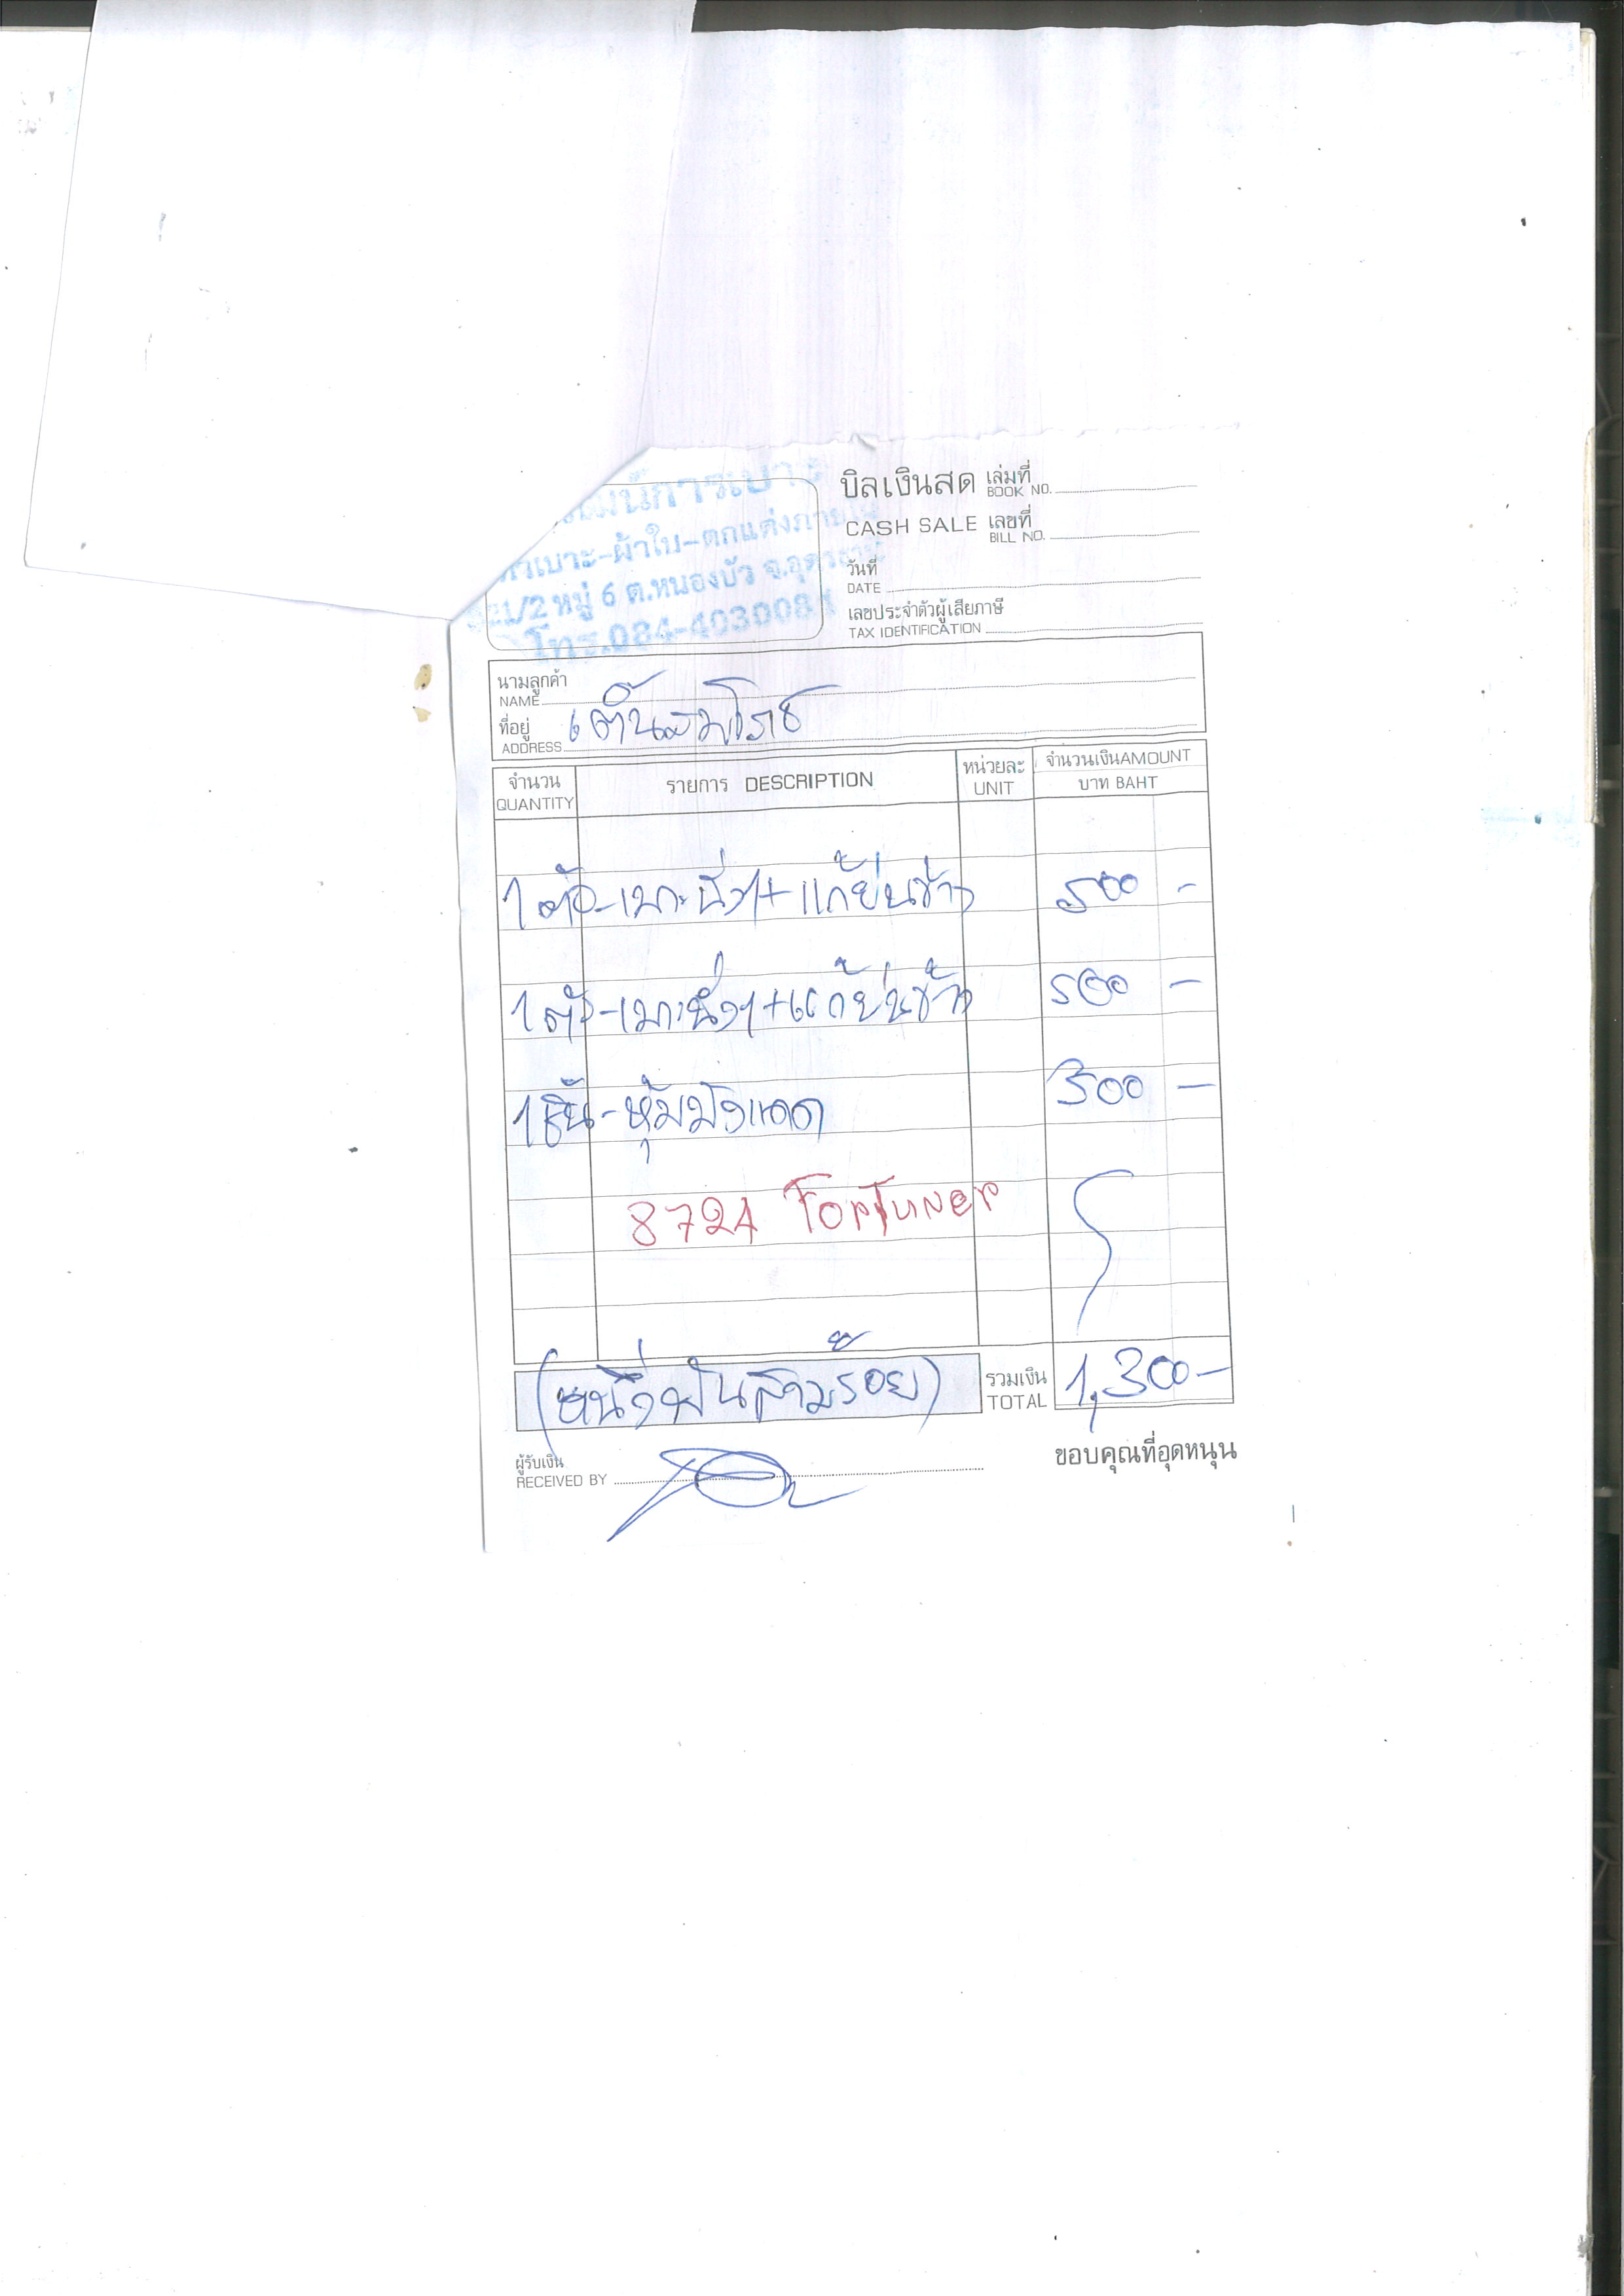 การเบาะ
เบาะ-ผ้าใบ-ตกแต่งภายใน
1/2 หมู่ 6 ต.หนองบัว จ.อุดรธานี
โทร.084-4030084
บิลเงินสด เล่มที่
BOOK NO.
CASH SALE เลขที่
BILL NO.
วันที่
DATE
เลขประจำตัวผู้เสียภาษี
TAX IDENTIFICATION
นามลูกค้า
NAME
ที่อยู่ เต๊นสมโภช
ADDRESS
จำนวน รายการ DESCRIPTION หน่วยละ จำนวนเงินAMOUNT
QUANTITY UNIT บาท BAHT
1 ตัว-เบาะนั่ง+แก้ย่นข้าง 500 -
1 ตัว-เบาะนั่ง+แก้ย่นข้าง 500 -
1 ชิ้น-หุ้มบังแดด 300 -
8724 Fortuner
(หนึ่งพันสามร้อย) รวมเงิน 1,300-
TOTAL
ผู้รับเงิน
RECEIVED BY
ขอบคุณที่อุดหนุน